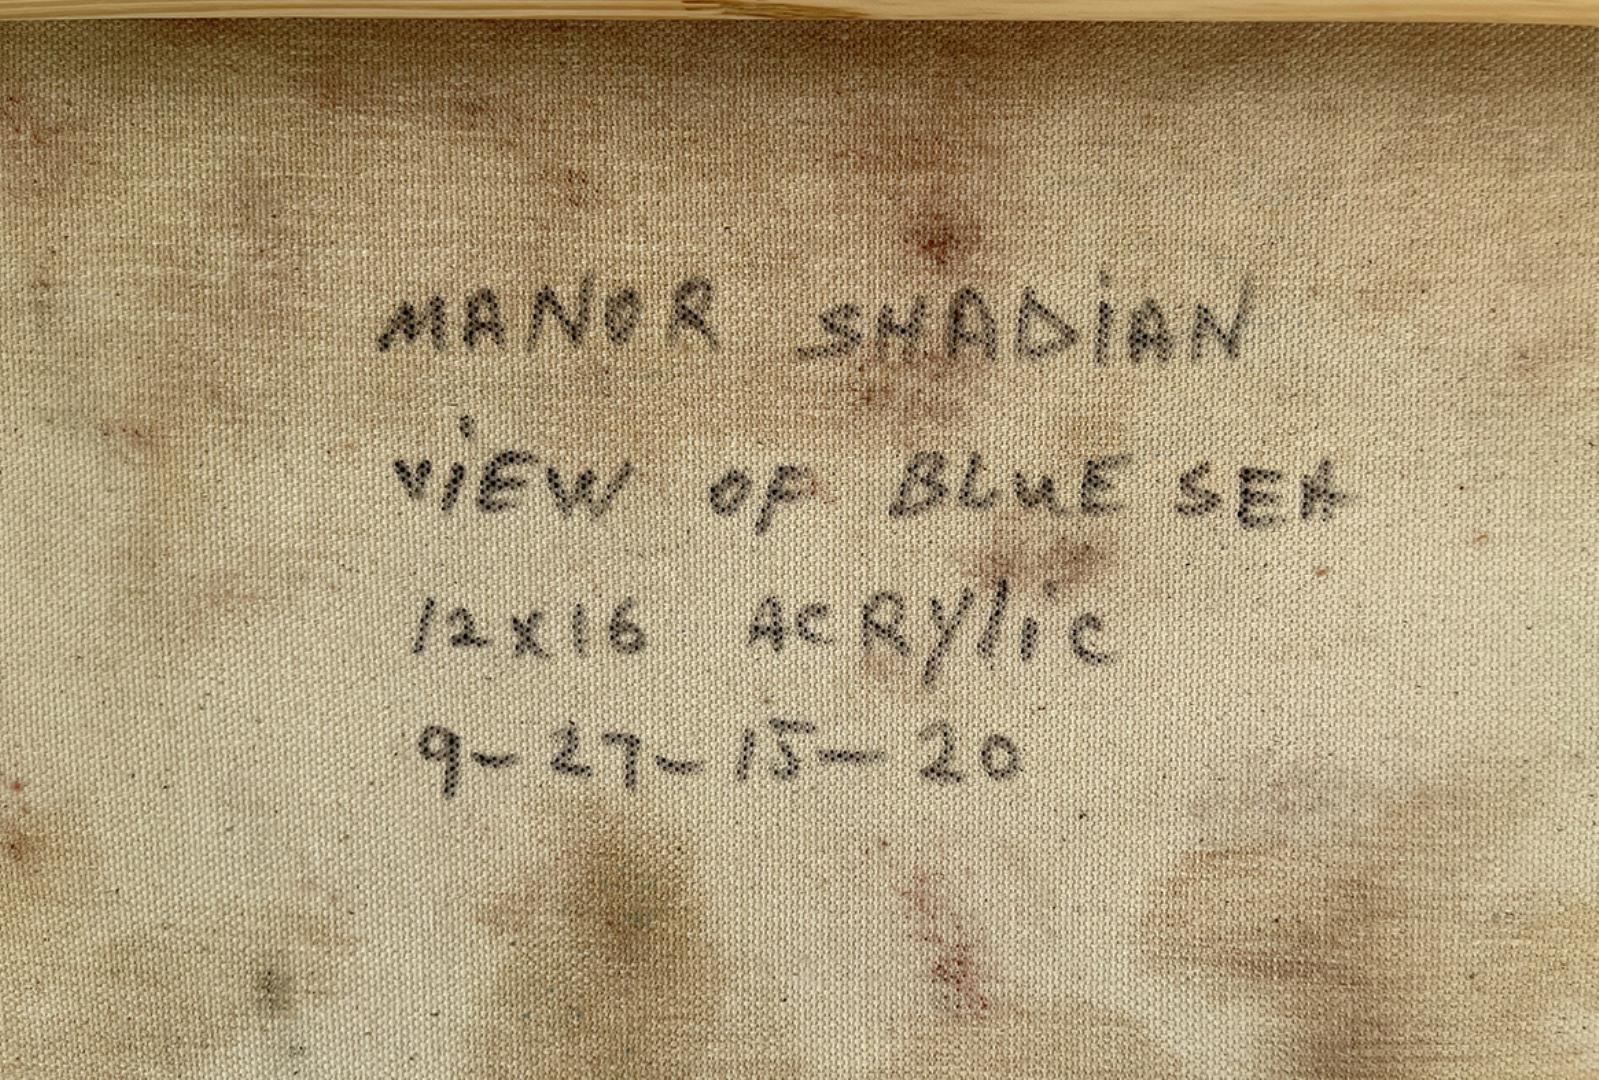 MANOR SHADiAN
ViEW OF BLUE SEA
12x16 ACRYlic
9-27-15-20